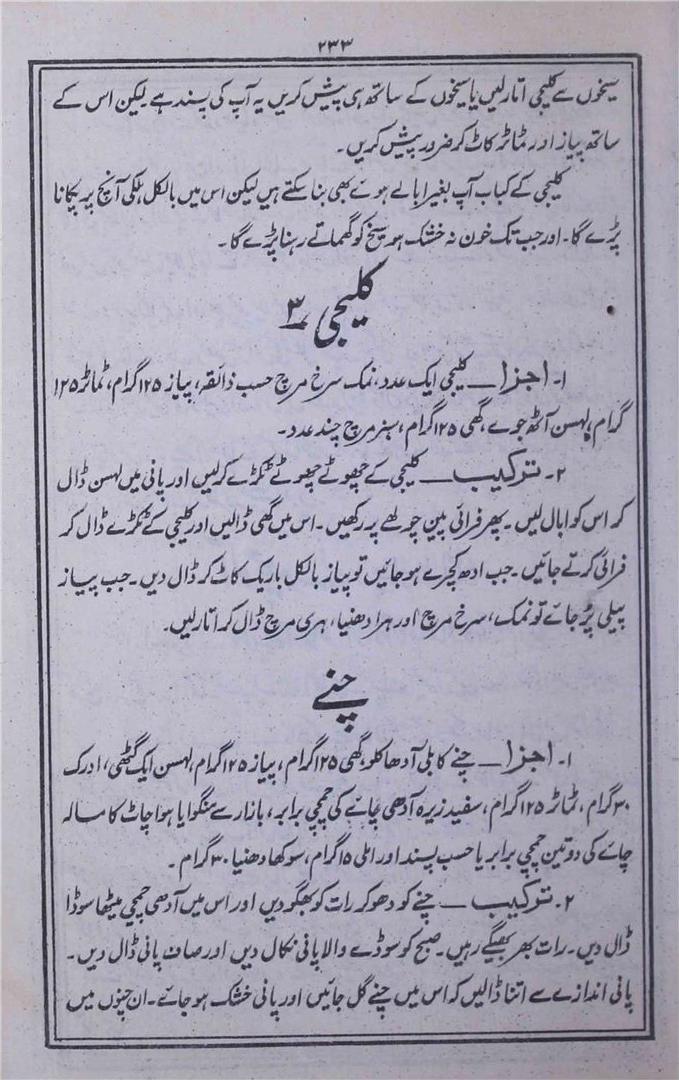 ۲۳۳
سیخوں سے کلیجی اتار لیں یا سیخوں کے ساتھ ہی پیش کریں یہ آپ کی پسند ہے لیکن اس کے
ساتھ پیاز اور ٹماٹر کاٹ کر ضرور پیش کریں۔
کلیجی کے کباب آپ بغیر ابالے ہوئے بھی بنا سکتے ہیں لیکن اس میں بالکل ہلکی آنچ پر پکانا
پڑے گا۔ اور جب تک خون نہ خشک ہو سیخ کو گھماتے رہنا پڑے گا۔
کلیجی ۳
۱۔ اجزا — کلیجی ایک عدد، نمک سرخ مرچ حسب ذائقہ، پیاز ۱۲۵ گرام، ٹماٹر ۱۲۵
گرام، لہسن آٹھ جوے، گھی ۱۲۵ گرام، سبز مرچ چند عدد۔
۲۔ ترکیب — کلیجی کے چھوٹے چھوٹے ٹکڑے کر لیں اور پانی میں لہسن ڈال
کر اس کو ابال لیں۔ پھر فرائی پین چولھے پر رکھیں۔ اس میں گھی ڈالیں اور کلیجی کے ٹکڑے ڈال کر
فرائی کرتے جائیں۔ جب ادھ کچرے ہو جائیں تو پیاز بالکل باریک کاٹ کر ڈال دیں۔ جب پیاز
پیلی پڑ جائے تو نمک، سرخ مرچ اور ہرا دھنیا، ہری مرچ ڈال کر اتار لیں۔
چنے
۱۔ اجزا — چنے کابلی آدھا کلو، گھی ۱۲۵ گرام، پیاز ۱۲۵ گرام، لہسن ایک گٹھی، ادرک
۳۰ گرام، ٹماٹر ۱۲۵ گرام، سفید زیرہ آدھی چائے کی چمچی برابر، بازار سے منگوایا ہوا چاٹ کا مسالہ
چائے کی دو تین چمچی برابر یا حسب پسند اور املی ۱۵ گرام، سوکھا دھنیا ۳۰ گرام۔
۲۔ ترکیب — چنے کو دھو کر رات کو بھگو دیں اور اس میں آدھی چمچی میٹھا سوڈا
ڈال دیں۔ رات بھر بھیگے رہیں۔ صبح کو سوڈے والا پانی نکال دیں اور صاف پانی ڈال دیں۔
پانی اندازے سے اتنا ڈالیں کہ اس میں چنے گل جائیں اور پانی خشک ہو جائے۔ ان چنوں میں